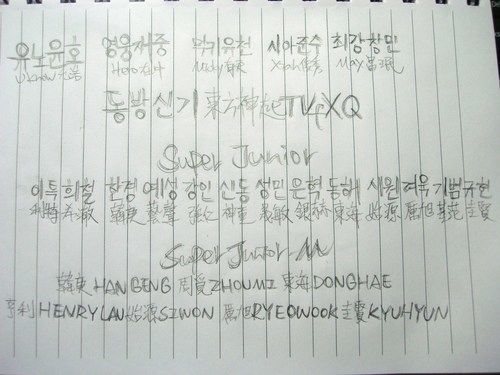 유노윤호 영웅재중 믹키유천 시아준수 최강창민
U-know允浩 Hero在中 Micky有天 Xiah俊秀 MAX昌珉
동방신기 東方神起 TVfXQ
Super Junior
이특 희철 한경 예성 강인 신동 성민 은혁 동해 시원 려욱 기범 규현
利特 希澈 韓庚 藝聲 強仁 神童 晟敏 銀赫 東海 始源 厲旭 基范 圭賢
Super Junior-M
韓庚 HANGENG 周覓 ZHOUMI 東海 DONGHAE
亨利 HENRY LAU 始源 SIWON 厲旭 RYEOWOOK 圭賢 KYUHYUN